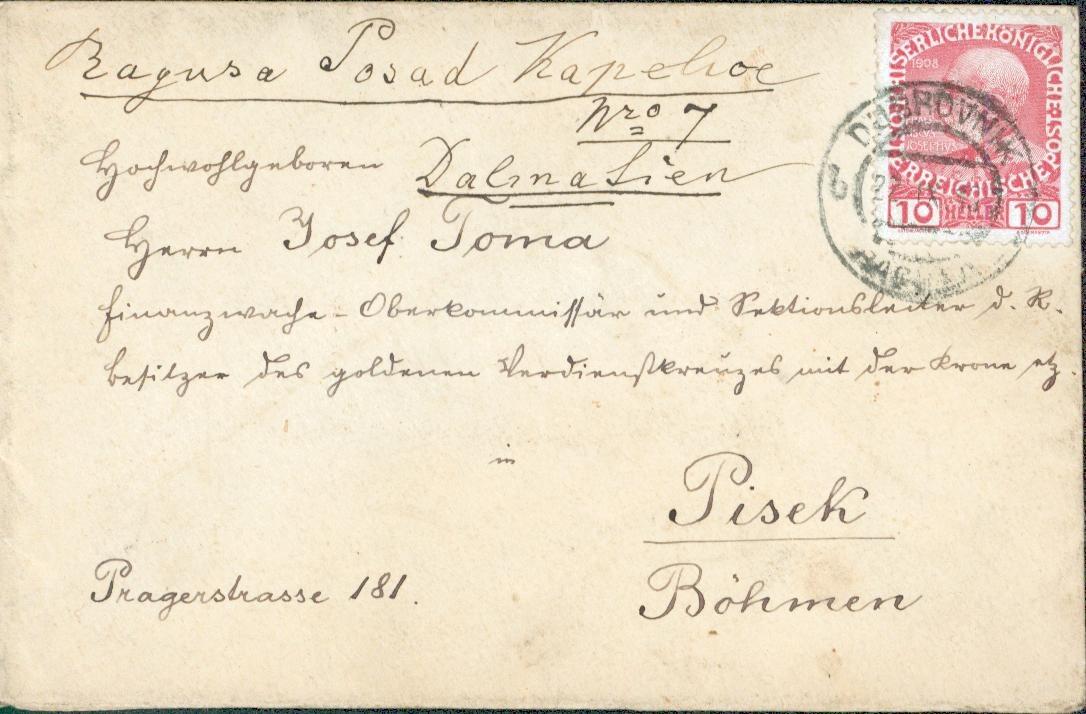 Ragusa Posad Kapelice
Nro 7
Dalmatien
Hochwohlgeboren
Herrn Josef Toma
Finanzwache-Oberkommissär und Sektionsleiter d. R.
besitzer des goldenen Verdienstkreuzes mit der Krone etz.
in
Pisek
Böhmen
Pragerstrasse 181.
KAISERLICHE KÖNIGLICHE ÖSTERREICHISCHE POST
1908
IOSEPHVS
10 HELLER 10
DUBROVNIK
RAGUSA